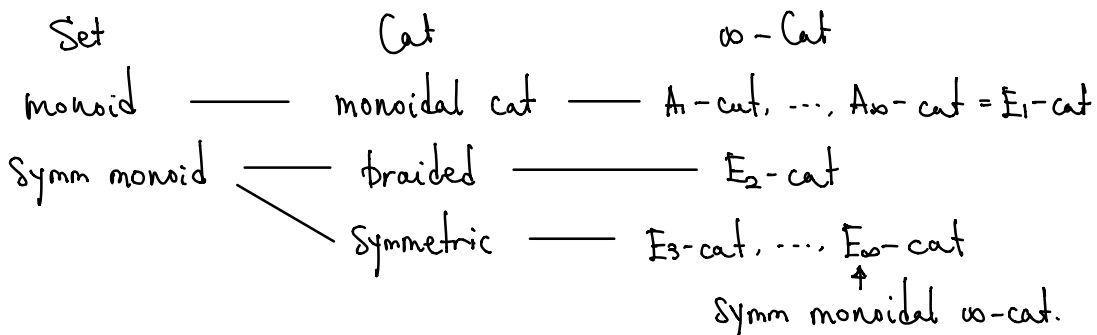 Set Cat ∞-Cat
monoid — monoidal cat — A₁-cat, ..., A∞-cat = E₁-cat
Symm monoid — braided — E₂-cat
Symmetric — E₃-cat, ..., E∞-cat
↑
Symm monoidal ∞-cat.